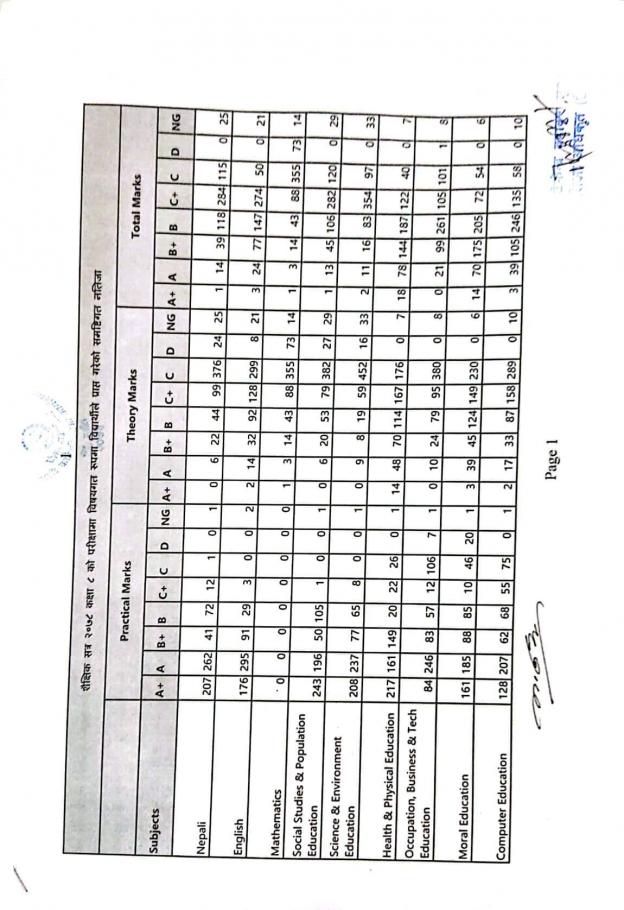 शैक्षिक सत्र २०७८ कक्षा ८ को परीक्षामा विषयगत रूपमा विद्यार्थीले प्राप्त गरेको समष्टिगत नतिजा
Practical Marks Theory Marks Total Marks
Subjects A+ A B+ B C+ C D NG A+ A B+ B C+ C D NG A+ A B+ B C+ C D NG
Nepali 207 262 41 72 12 1 0 1 0 6 22 44 99 376 24 25 1 14 39 118 284 115 0 25
English 176 295 91 29 3 0 0 2 2 14 32 92 128 299 8 21 3 24 77 147 274 50 0 21
Mathematics 0 0 0 0 0 0 0 0 1 3 14 43 88 355 73 14 1 3 14 43 88 355 73 14
Social Studies & Population
Education 243 196 50 105 1 0 0 1 0 6 20 53 79 382 27 29 1 13 45 106 282 120 0 29
Science & Environment
Education 208 237 77 65 8 0 0 1 0 9 8 19 59 452 16 33 2 11 16 83 354 97 0 33
Health & Physical Education 217 161 149 20 22 26 0 1 14 48 70 114 167 176 0 7 18 78 144 187 122 40 0 7
Occupation, Business & Tech
Education 84 246 83 57 12 106 7 1 0 10 24 79 95 380 0 8 0 21 99 261 105 101 1 8
Moral Education 161 185 88 85 10 46 20 1 3 39 45 124 149 230 0 6 14 70 175 205 72 54 0 6
Computer Education 128 207 62 68 55 75 0 1 2 17 33 87 158 289 0 10 3 39 105 246 135 58 0 10
Page 1